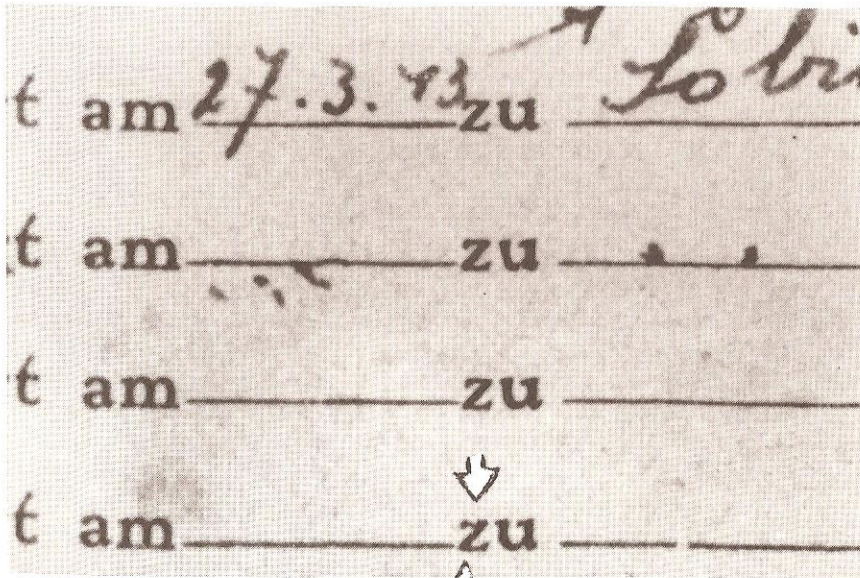 t am 27.3.43 zu Sobi
t am zu
t am zu
t am zu